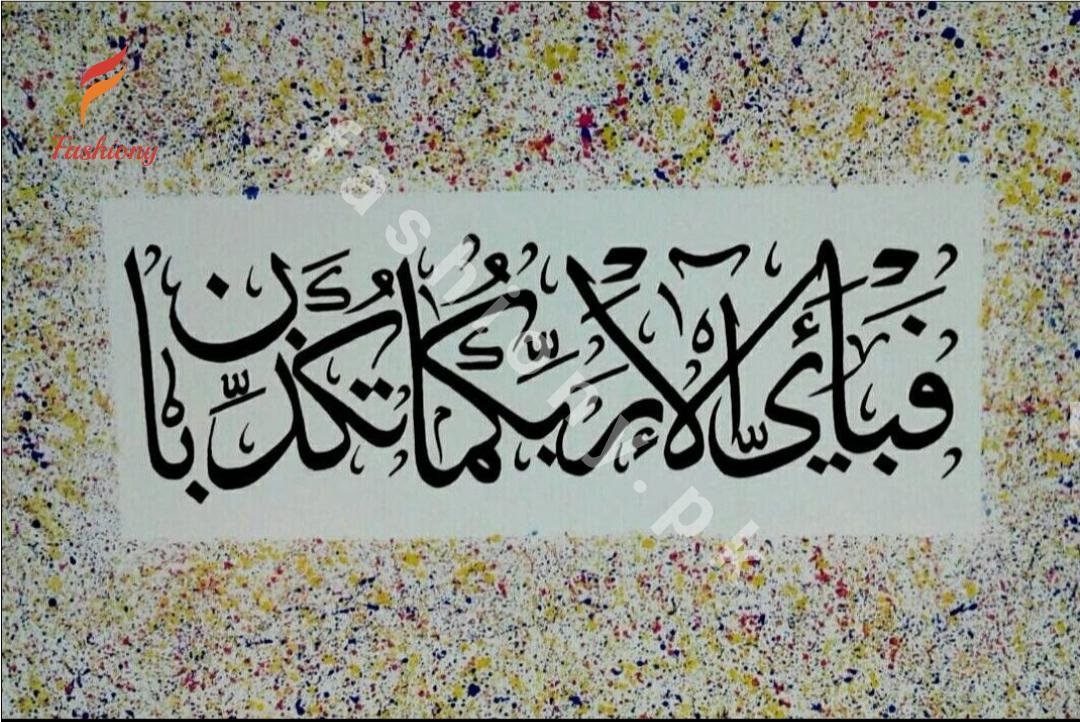 Fashiony
fashiony.pk
فَبِأَيِّ آلَاءِ رَبِّكُمَا تُكَذِّبَانِ